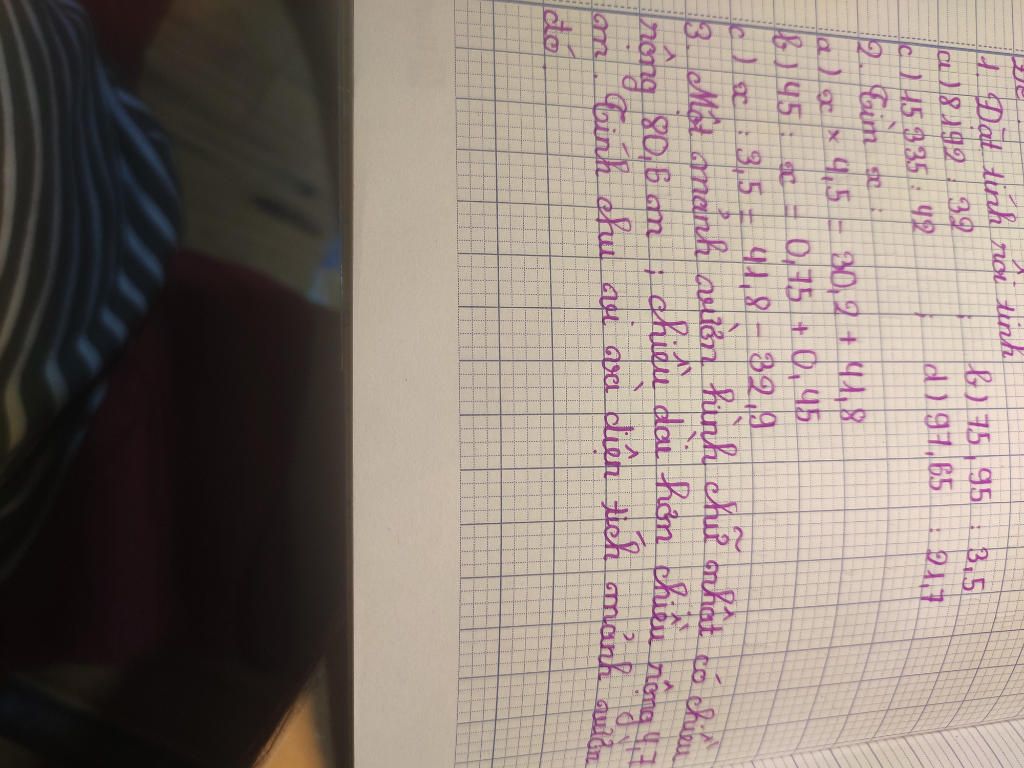 1. Đặt tính rồi tính
a) 8192 : 32 ; b) 75,95 : 3,5
c) 15335 : 42 ; d) 97,65 : 21,7
2. Tìm x :
a) x × 4,5 = 30,2 + 41,8
b) 45 : x = 0,75 + 0,45
c) x : 3,5 = 41,8 - 32,9
3. Một mảnh vườn hình chữ nhật có chiều
rộng 80,6 m ; chiều dài hơn chiều rộng 4,7
m. Tính chu vi và diện tích mảnh vườn
đó.